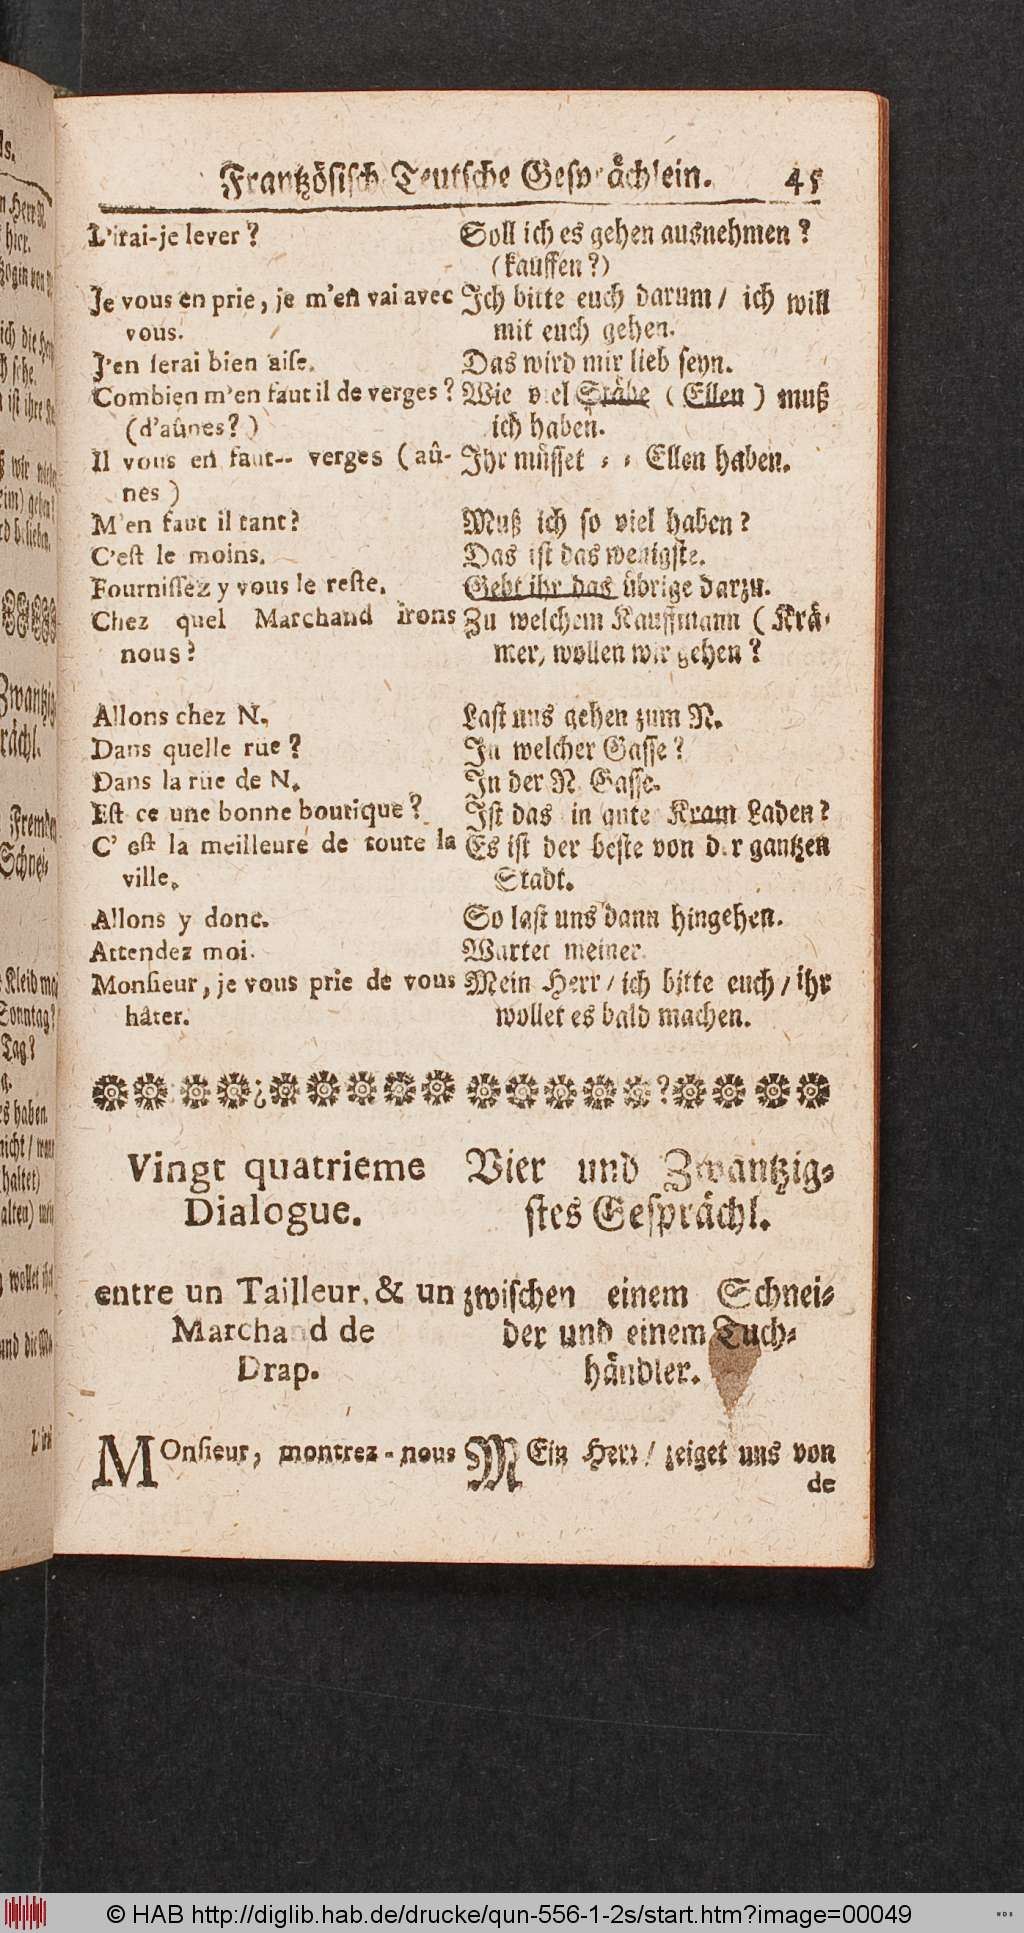 Frantzösisch Teutsche Gesprächlein. 45
L'irai-je lever?
Je vous en prie, je m'en vai avec
vous.
J'en serai bien aise.
Combien m'en faut il de verges?
(d'aûnes?)
Il vous en faut-- verges (aû-
nes)
M'en faut il tant?
C'est le moins.
Fournissez y vous le reste.
Chez quel Marchand irons
nous?
Allons chez N.
Dans quelle rüe?
Dans la rüe de N.
Est ce une bonne boutique?
C' est la meilleure de toute la
ville.
Allons y donc.
Attendez moi.
Monsieur, je vous prie de vous
hâter.
Soll ich es gehen ausnehmen?
(kauffen?)
Ich bitte euch darum/ ich will
mit euch gehen.
Das wird mir lieb seyn.
Wie viel Stäbe (Ellen) muß
ich haben.
Ihr müsset - - Ellen haben.
Muß ich so viel haben?
Das ist das wenigste.
Gebt ihr das übrige darzu.
Zu welchem Kauffmann (Krä-
mer, wollen wir gehen?
Last uns gehen zum N.
In welcher Gasse?
In der N. Gasse.
Ist das ein gute Kram Laden?
Es ist der beste von der gantzen
Stadt.
So last uns dann hingehen.
Wartet meiner.
Mein Herr/ ich bitte euch/ ihr
wollet es bald machen.
Vingt quatrieme
Dialogue.
entre un Tailleur, & un
Marchand de
Drap.
Monsieur, montrez-nous
Vier und Zwantzig-
stes Gesprächl.
zwischen einem Schnei-
der und einem Tuch-
händler.
MEin Herr/ zeiget uns von
de
© HAB http://diglib.hab.de/drucke/qun-556-1-2s/start.htm?image=00049